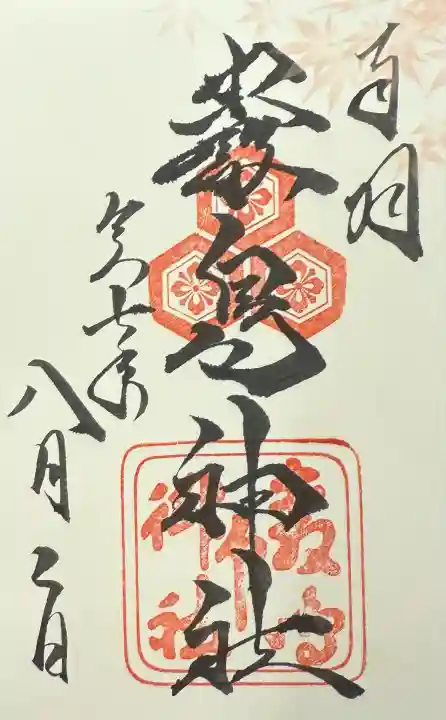 奉拝
嚴島神社
令和七年
八月二日
嚴島神社